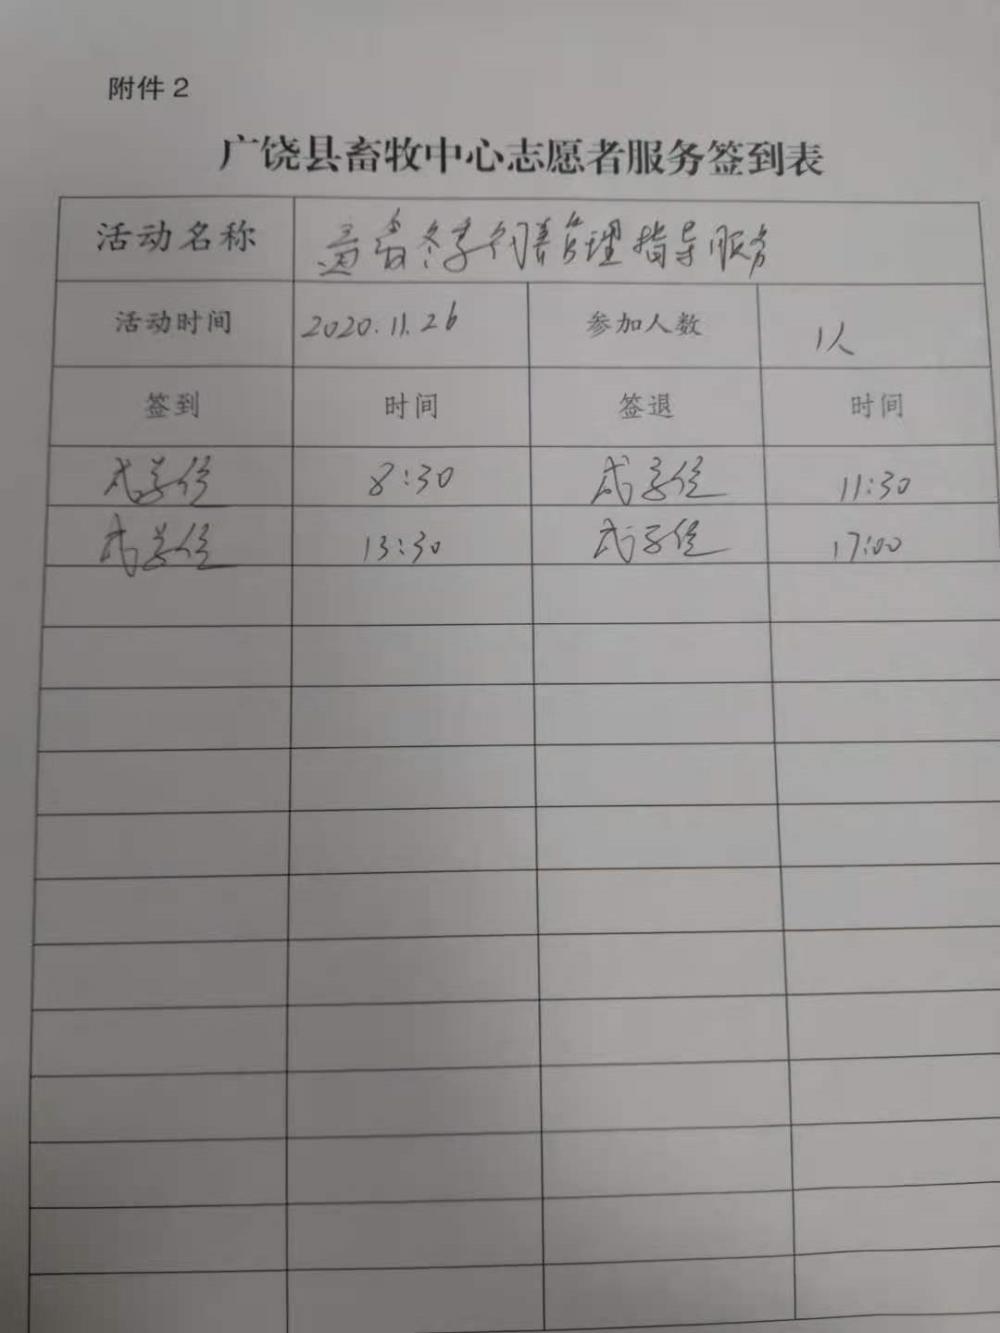 附件 2
广饶县畜牧中心志愿者服务签到表
活动名称 畜禽冬季饲养管理指导服务
活动时间 2020.11.26 参加人数 1人
签到 时间 签退 时间
8:30 11:30
13:30 17:00